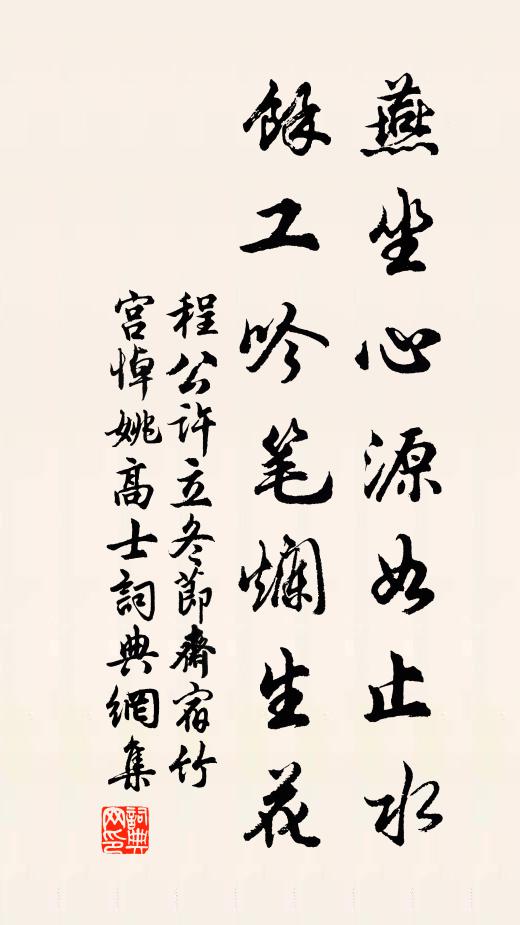 燕坐心源如止水
餘工吟笔爛生花
程公許立冬節齋宿竹
宫悼姚高士詞典網集
詞典网印